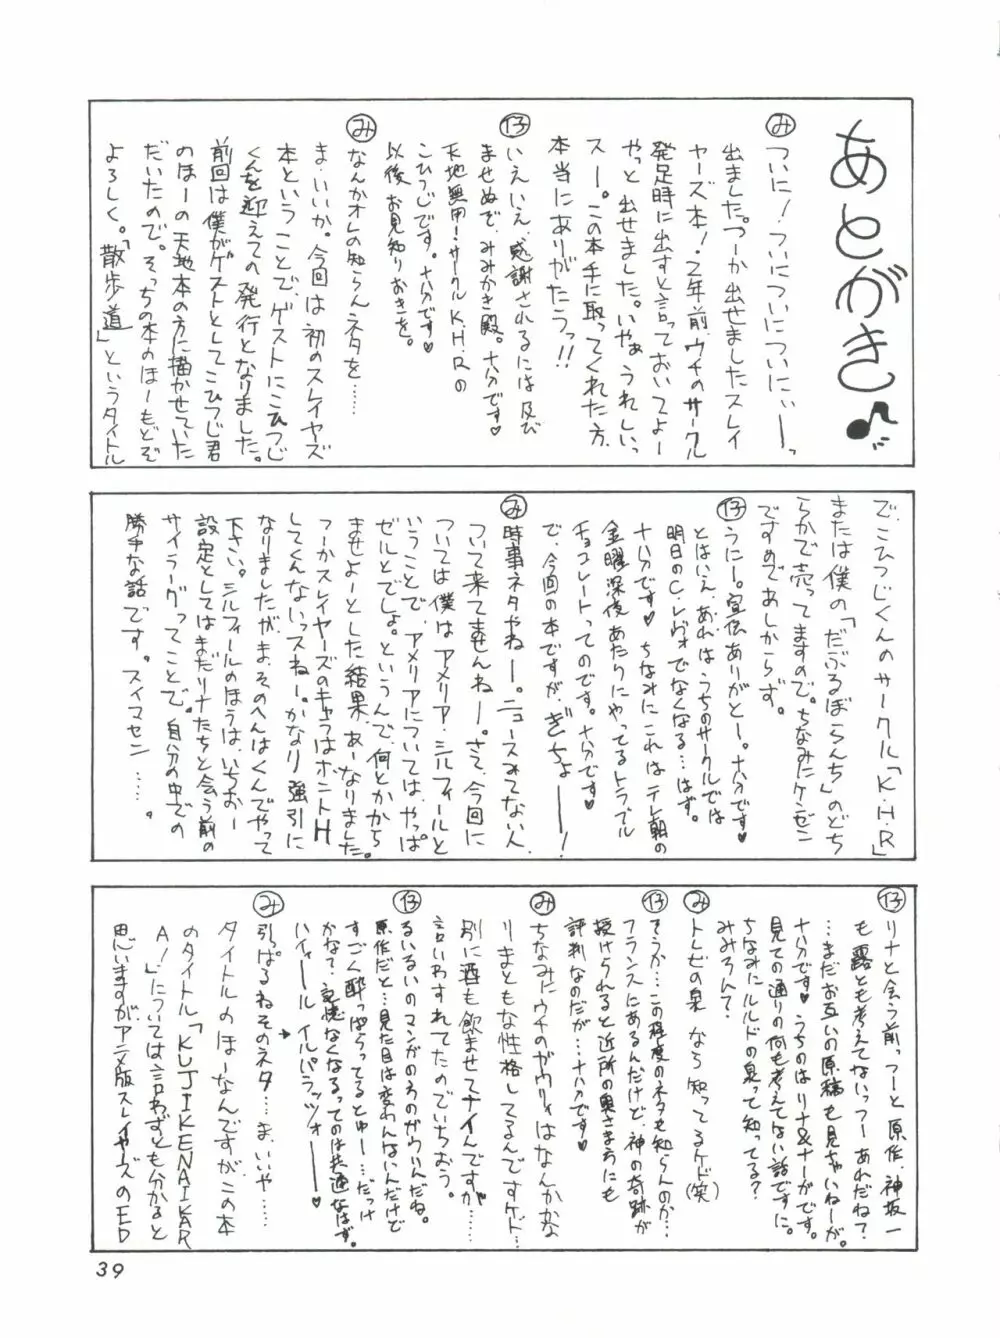 あとがき♪
み ついに！ついについについにぃぃーーっ
出ました。つーか出せましたスレイ
ヤーズ本！2年前、ウチのサークル
発足時に出すと言っておいてよー
やっと出せました。いやぁうれしいっ
スー。この本手に取ってくれた方
本当にありがたうっ!!
仔 いえいえ、感謝されるには及び
ませぬで、みみかき殿。十分です♥
天地無用！サークルK.H.Rの
こひつじです。十分です♥
以後お見知りおきを。
み なんかオレの知らんネタを……
ま、いいか。今回は初のスレイヤズ
本ということで、ゲストにこひつじ
くんを迎えての発行となりました。
前回は僕がゲストとしてこひつじ君
のほーの天地本の方に描かせていた
だいたので。そっちの本のほーもどぞ
よろしく。「散歩道」というタイトル
で、こひつじくんのサークル「K・H・R」
または僕の「だぶるぼらんち」のどち
らかで売ってますので。ちなみにケンゼン
ですのであしからず。
仔 うにー。宣伝ありがとー。十分です♥
とはいえ、あれはうちのサークルでは
明日のC.レヴォでなくなる…はず。
十分です♥ ちなみにこれはテレ朝の
金曜深夜あたりにやってるトラブル
チョコレートってのです。十分です♥
で、今回の本ですが、ぎちょーーー！
み 時事ネタやねー。ニュースみてない人
ついて来てませんねー。さて、今回に
ついては僕はアメリア、シルフィールと
いうことで、アメリアについては、やっぱ
ゼルとでしょ。というんで、何とかから
ませよーとした結果、あーなりました。
つーかスレイヤーズのキャラはホントH
してくんないっスねー。かなり強引に
なりましたが、ま、そのへんはくんでやって
下さい。シルフィールのほうは、いちおー
設定としてはまだリナたちと会う前の
サイラーグってことで。自分の中での
勝手な話です。スイマセン……。
仔 リナと会う前っつーと原作、神坂一
も露とも考えてないっつーあれだね？
…まだお互いの原稿も見ちゃいねーが。
十分です♥ うちのはリナ&ナーガです。
見ての通りの何も考えてない話ですに。
ちなみにルルドの泉って知ってる？
みみろんて？
み トレビの泉なら知ってるケド（笑）
仔 そうか…この程度のネタも知らんのか…
フランスにあるんだけど、神の奇跡が
授けられると近所の奥さま方にも
評判なのだが…十分です♥
み ちなみにウチのガウリィはなんかかな
りまともな性格してるんですケド…
別に酒も飲ませてナイんですが…
言いわすれてたのでいちおう。
仔 るいるいのマンガのろのガウリんだね。
原作だと…見た目は変わんないんだけど
すごく酔っぱらってるとゆー…だっけ
かな？記憶なくなるってのは共通なはず。
ハイィールイルパラッツォーーーー♥
み 引っぱるねそのネタ……ま、いいや……
タイトルのほーなんですが、この本
のタイトル「KUJIKENAIKAR
A！」については言わずとも分かると
思いますがアニメ版スレイヤーズのED
39